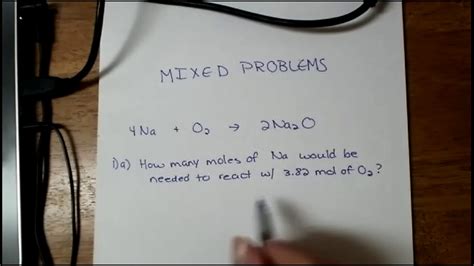 MIXED PROBLEMS
4Na + O₂ → 2Na₂O
1)a) How many moles of Na would be
needed to react w/ 3.82 mol of O₂?